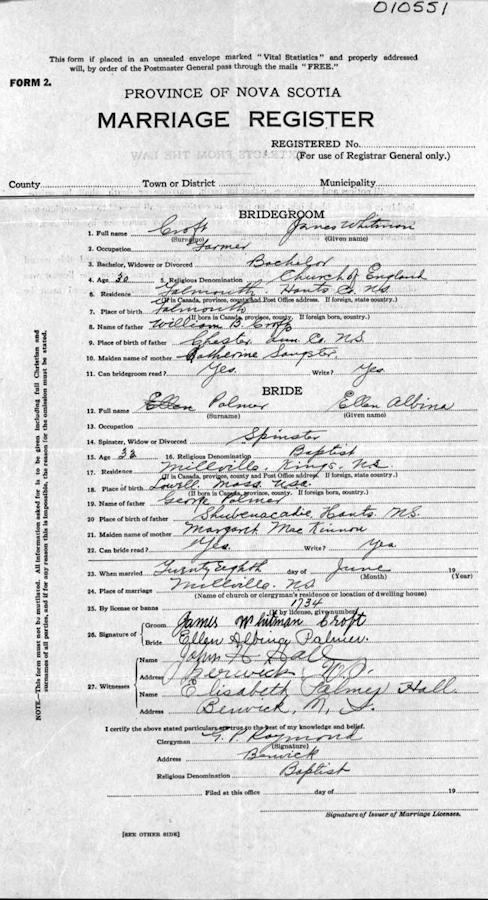 010551
This form if placed in an unsealed envelope marked "Vital Statistics" and properly addressed
will, by order of the Postmaster General pass through the mails "FREE."
FORM 2.
PROVINCE OF NOVA SCOTIA
MARRIAGE REGISTER
REGISTERED No.
(For use of Registrar General only.)
County Town or District Municipality
BRIDEGROOM
1. Full name Croft James Whitman
(Surname) (Given name)
2. Occupation Farmer
3. Bachelor, Widower or Divorced Bachelor
4. Age 30 5. Religious Denomination Church of England
6. Residence Falmouth Hants Co. N.S.
(If in Canada, province, county and Post Office address. If foreign, state country.)
7. Place of birth Falmouth
(If born in Canada, province, county. If foreign born, country.)
8. Name of father William B. Croft
9. Place of birth of father Chester Lun. Co. N.S.
10. Maiden name of mother Catherine Sangster
11. Can bridegroom read? Yes. Write? Yes.
BRIDE
12. Full name Ellen Palmer Ellen Albina
(Surname) (Given name)
13. Occupation
14. Spinster, Widow or Divorced Spinster
15. Age 32 16. Religious Denomination Baptist
17. Residence Millville, Kings, N.S.
(If in Canada, province, county and Post Office address. If foreign, state country.)
18. Place of birth Lowell Mass. Usa.
(If born in Canada, province, county. If foreign born, country.)
19. Name of father George Palmer
20 Place of birth of father Shubenacadie, Hants N.S.
21. Maiden name of mother Margaret MacKinnon
22. Can bride read? Yes. Write? Yes
23. When married Twenty Eighth day of June 19
(Month) (Year)
24. Place of marriage Millville. N.S
(Name of church or clergyman's residence or location of dwelling house)
25. By license or banns 1734
(If by license, give number)
26. Signature of Groom James Whitman Croft
Bride Ellen Albina Palmer.
27. Witnesses Name John N Hall
Address Berwick, N.S.
Name Elisabeth Palmer Hall.
Address Berwick, N. S.
I certify the above stated particulars are true to the best of my knowledge and belief.
Clergyman G. P. Raymond
(Signature)
Address Berwick
Religious Denomination Baptist
Filed at this office day of 19
Signature of Issuer of Marriage Licenses.
[SEE OTHER SIDE]
NOTE.—This form must not be mutilated. All information asked for is to be given including full Christian and
surnames of all parties, and if for any reason this is impossible, the reason for the omission must be stated.